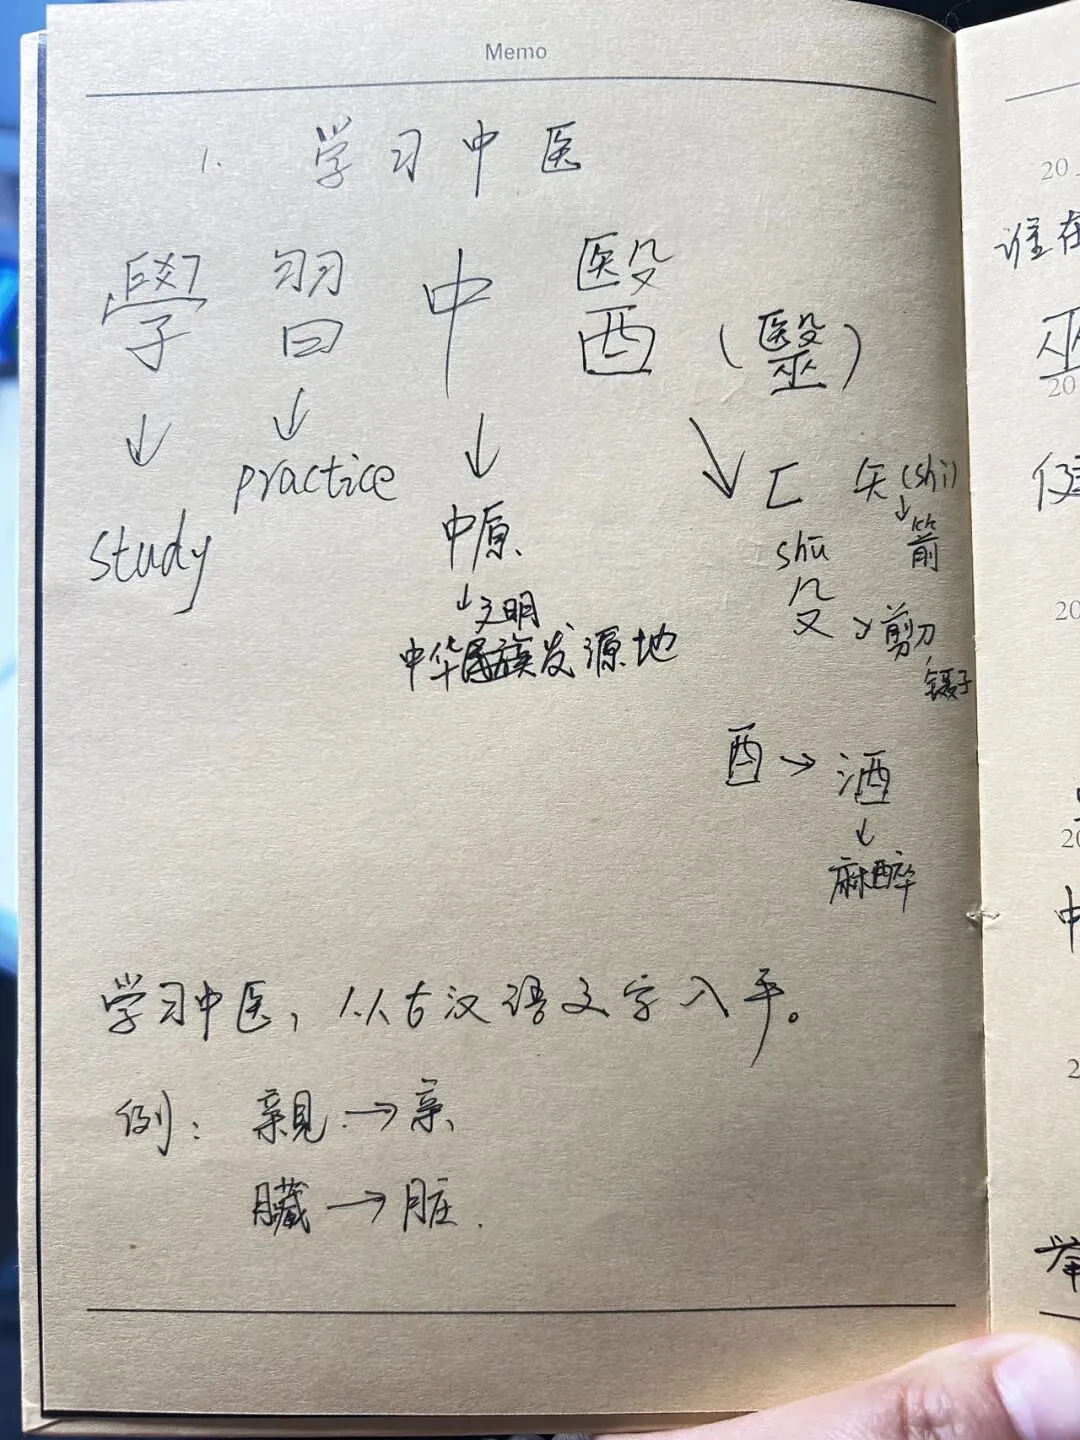 Memo
1. 学习中医
學 習 中 醫 (毉)
study
practice
中原
文明
中华民族发源地
匚 矢(shǐ)
箭
shū
殳 → 剪刀,
镊子
酉 → 酒
麻醉
学习中医，从古汉语文字入手。
例：親 → 亲
臟 → 脏.
20
谁在
巫
20
20
20
中
2